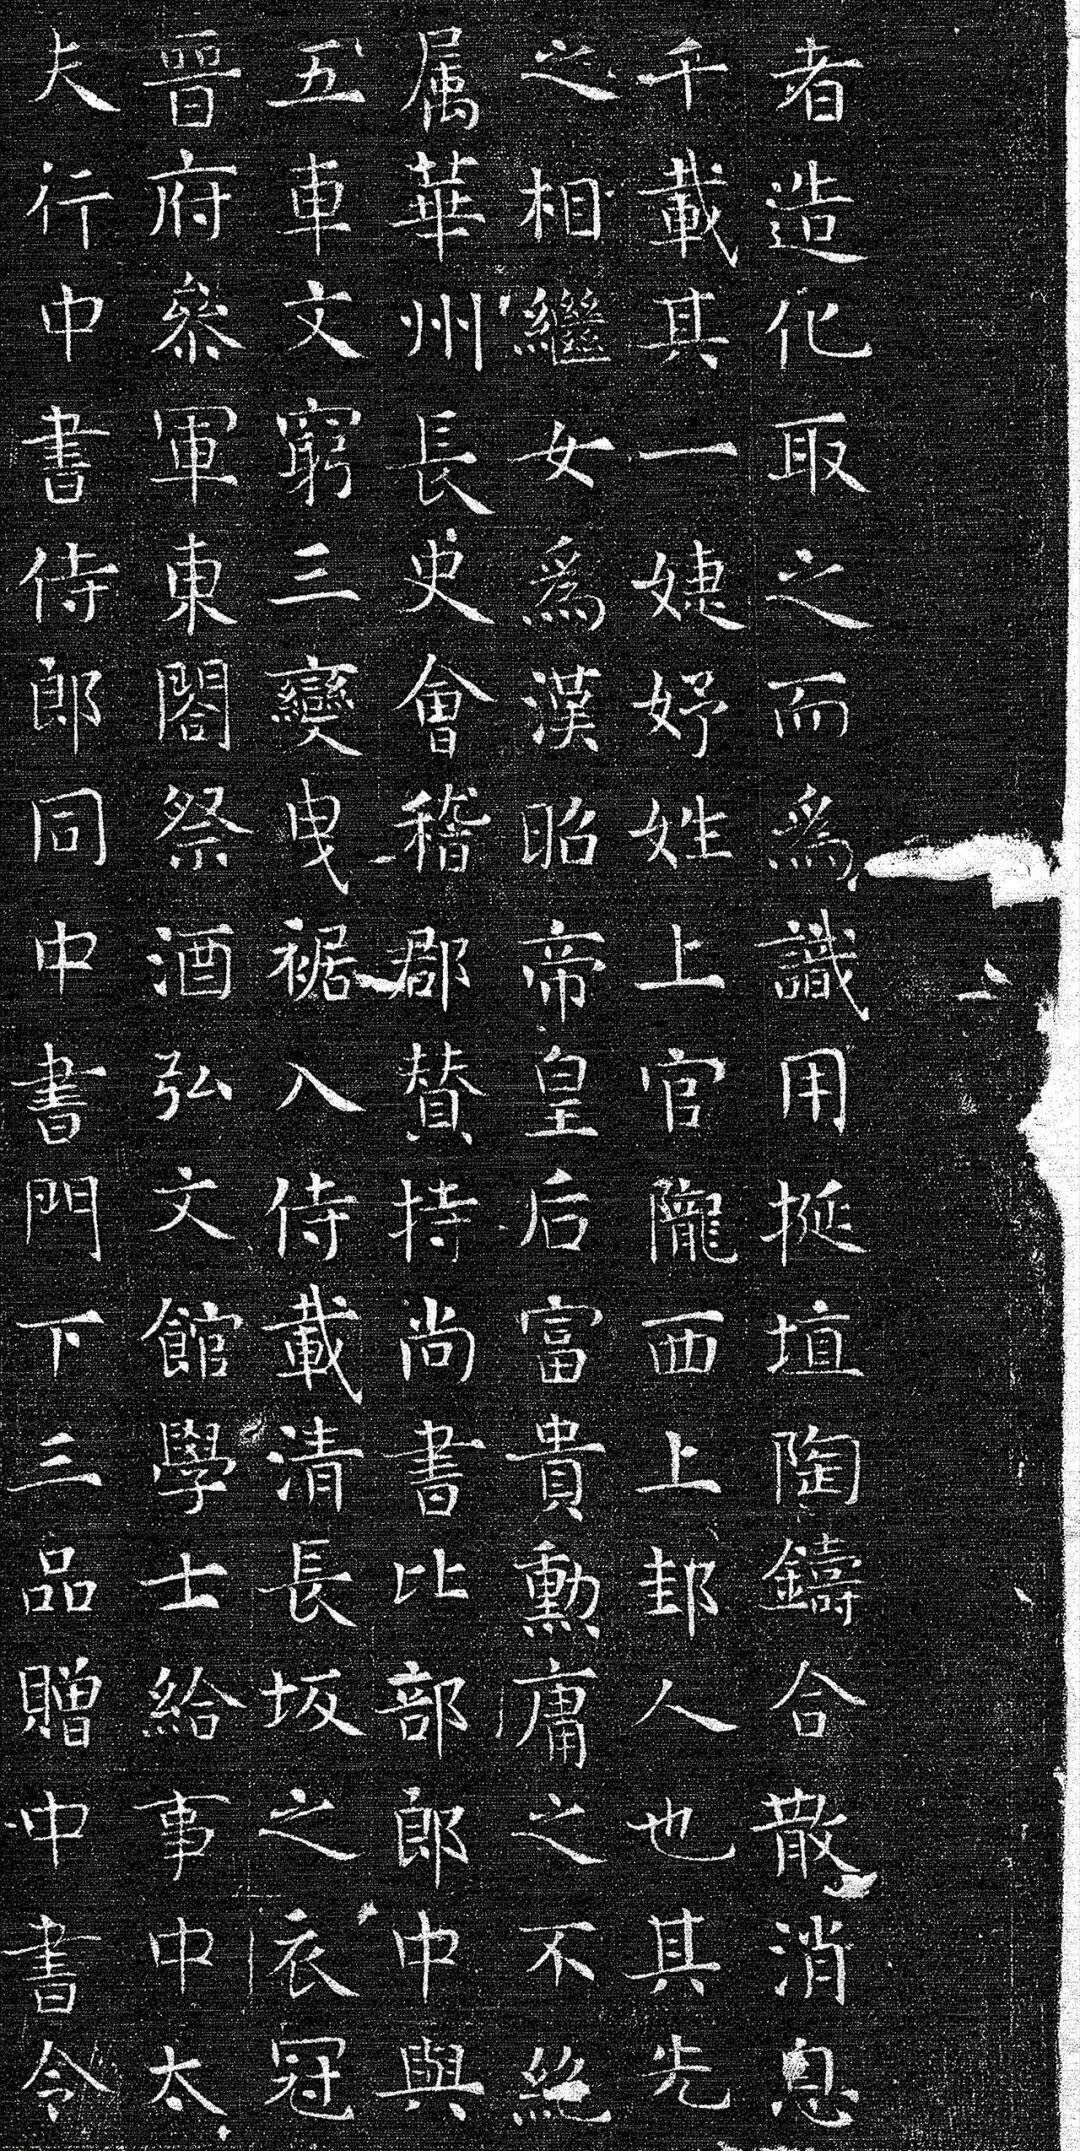 者造化取之而爲識用挻埴陶鑄合散消息
千載其一婕妤姓上官隴西上邽人也其先
之相繼女爲漢昭帝皇后富貴勳庸之不絕
属華州長史會稽郡賛持尚書比部郎中與
五車文窮三變曳裾入侍載清長坂之衣冠
晉府叅軍東閤祭酒弘文館學士給事中太
夫行中書侍郎同中書門下三品贈中書令